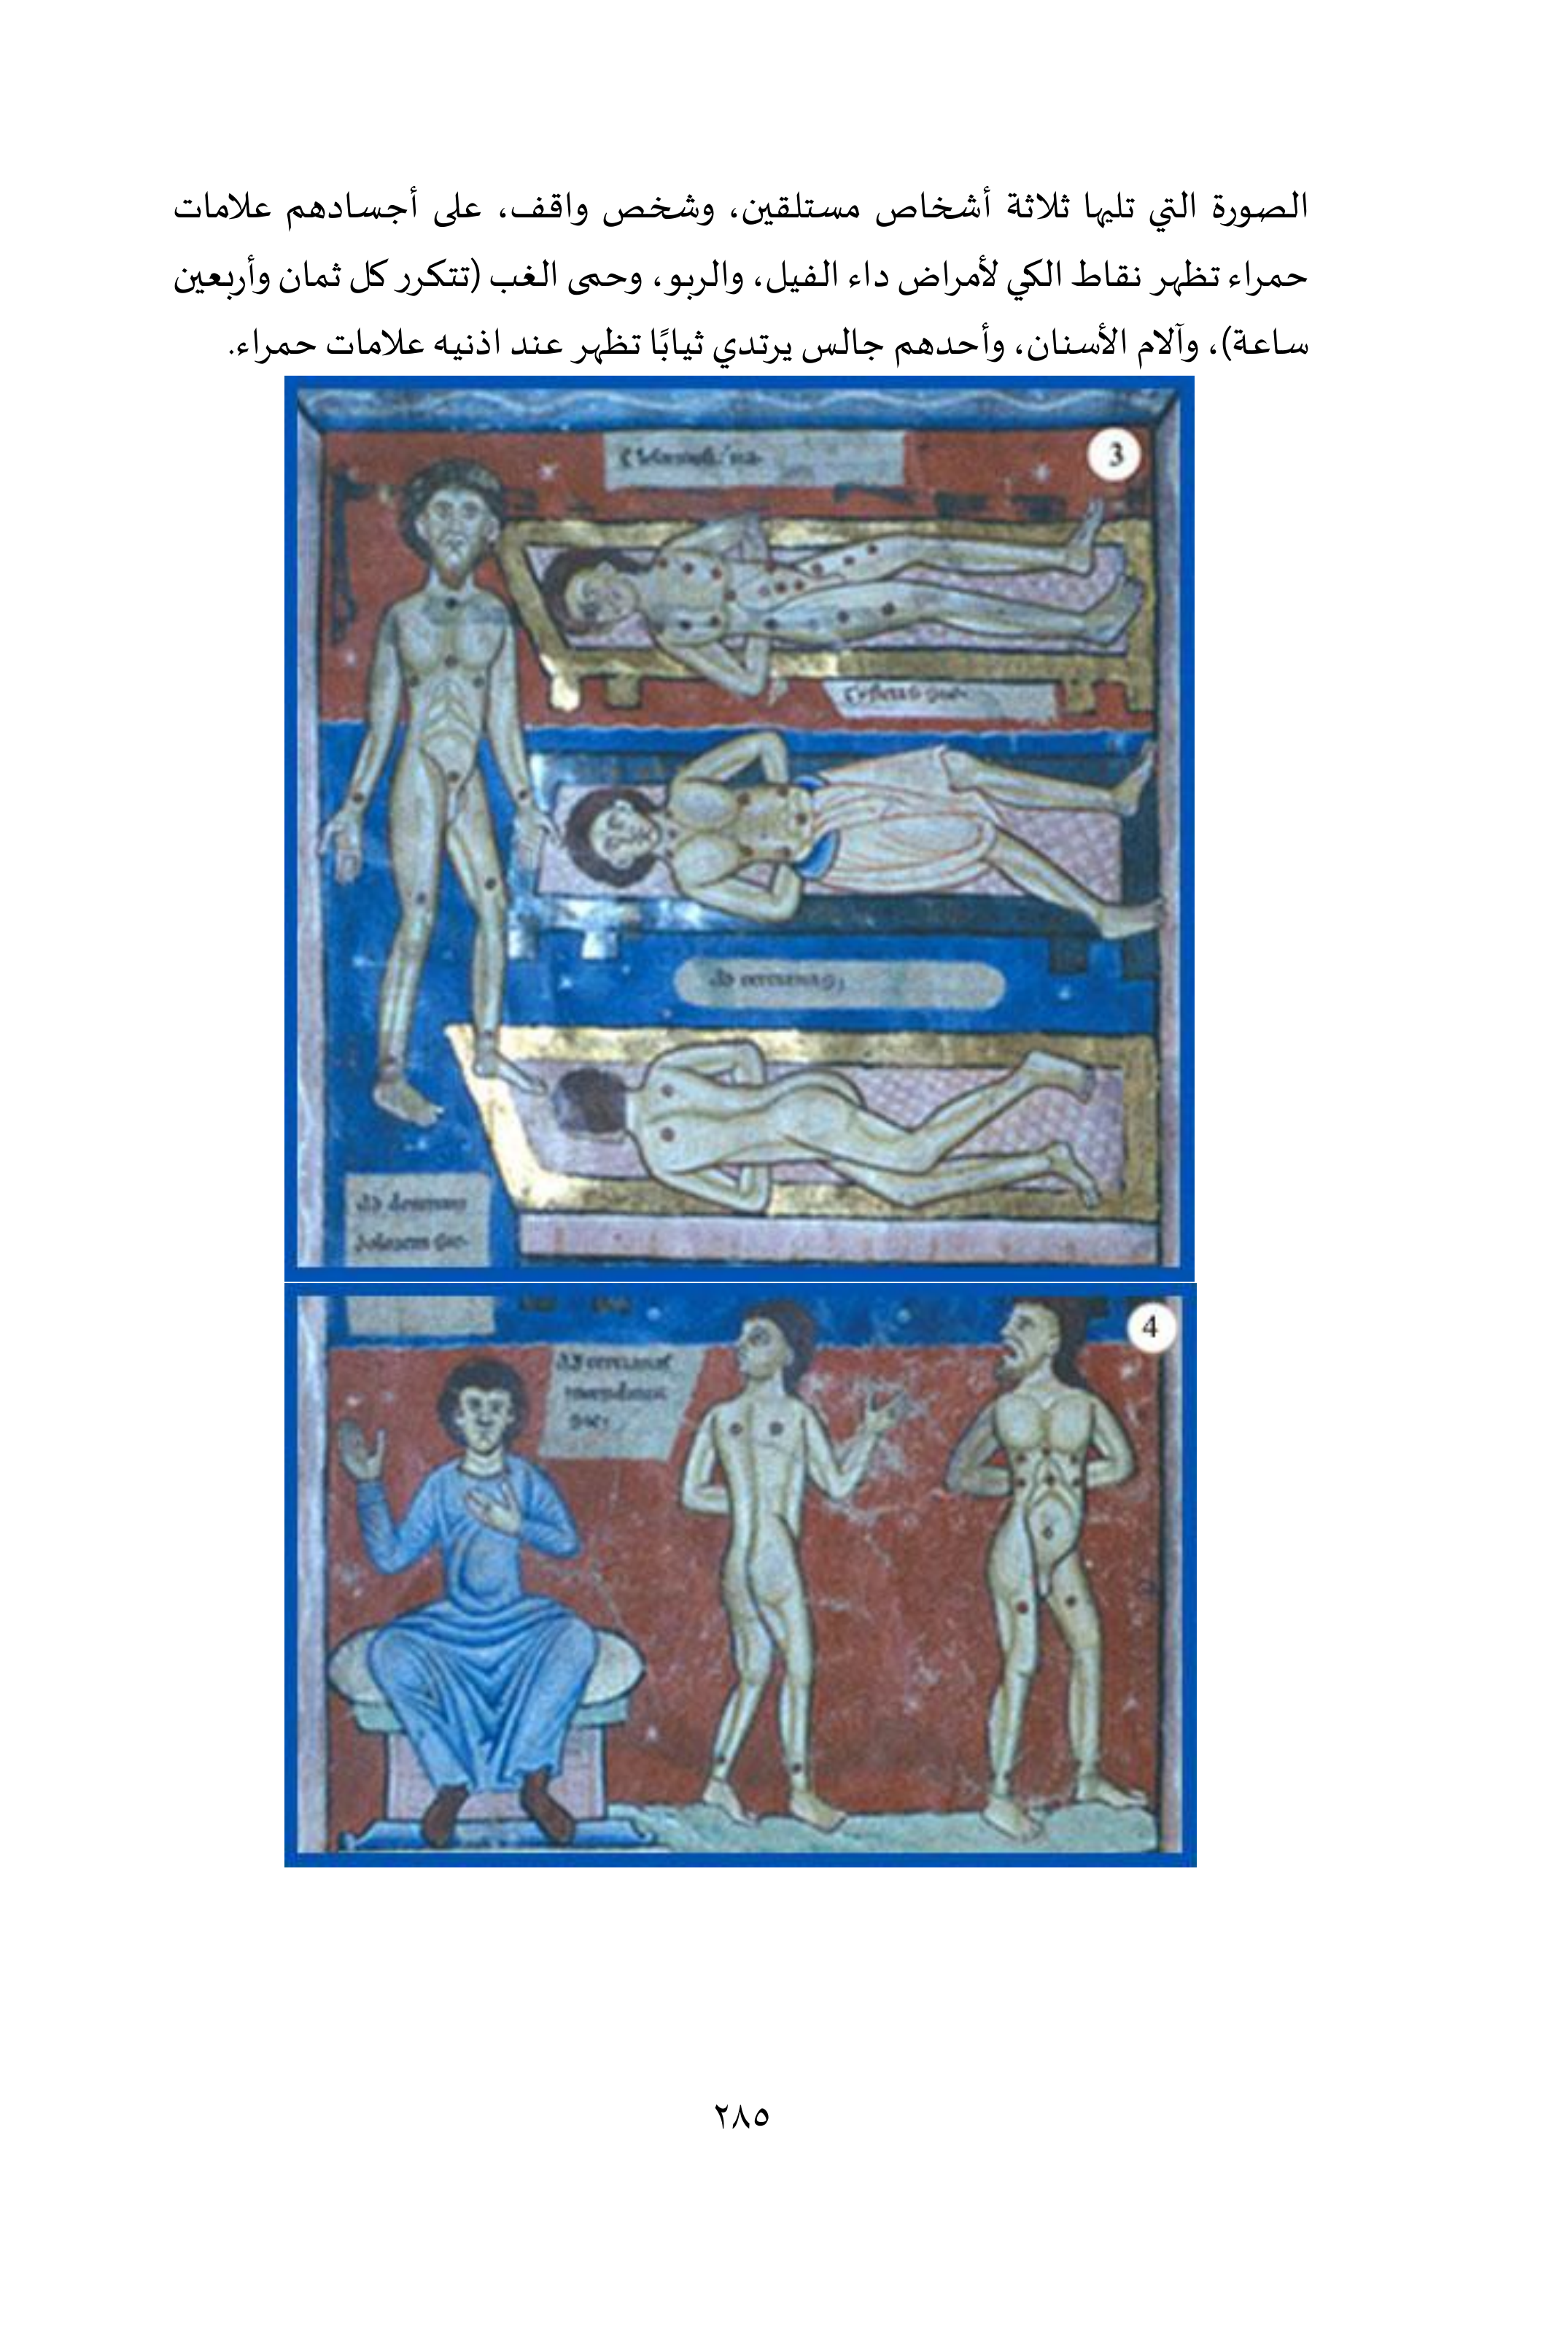 الصورة التي تليها ثلاثة أشخاص مستلقين، وشخص واقف، على أجسادهم علامات
حمراء تظهر نقاط الكي لأمراض داء الفيل، والربو، وحمى الغب (تتكرر كل ثمان وأربعين
ساعة)، وآلام الأسنان، وأحدهم جالس يرتدي ثيابًا تظهر عند اذنيه علامات حمراء.
3
4
٢٨٥